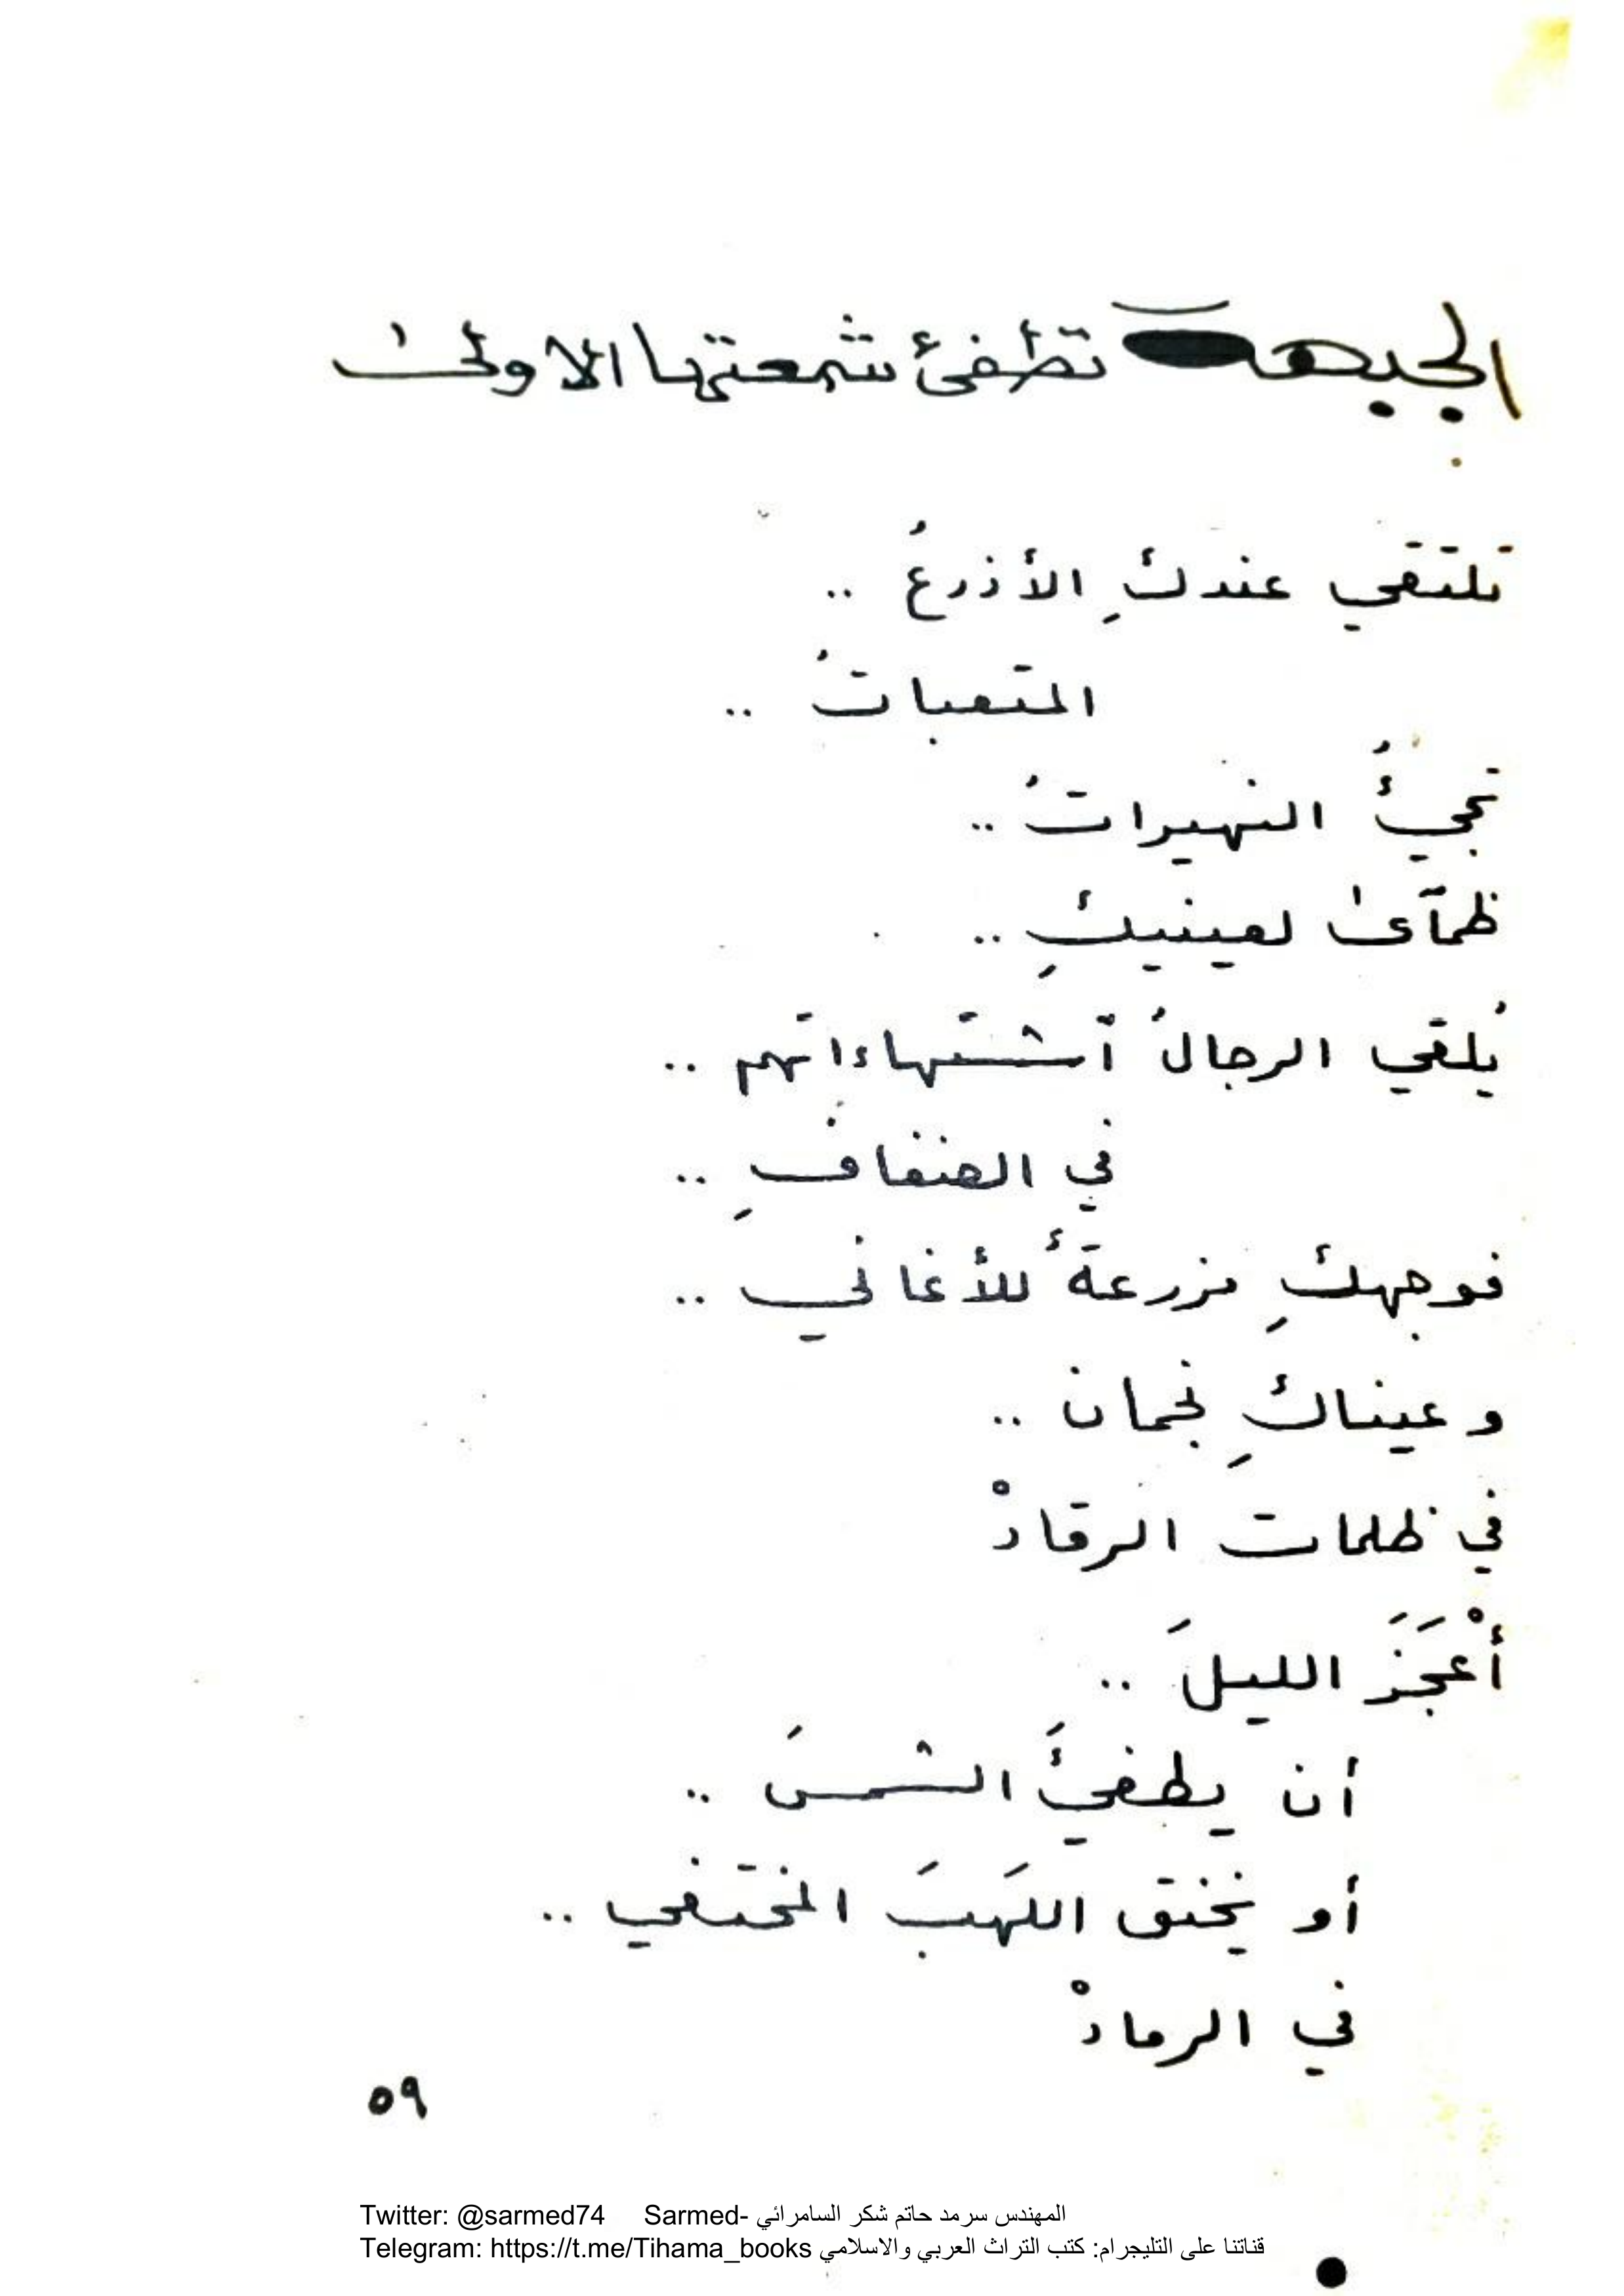 الجبهة تطفئ شمعتها الاولىٰ
تلتقي عندكِ الأذرعُ ..
المتعباتُ ..
تجئُ النهيراتُ ..
ظمآىٰ لعينيكِ ..
يُلقي الرجالُ آشتهاءاتهم ..
في الضفافِ ..
فوجهكِ مزرعةٌ للأغاني ..
وعيناكِ نجمان ..
في ظلمات الرقادْ
أعْجَزَ الليلَ ..
أن يطفئَ الشمسَ ..
أو يخنق اللهَبَ المختفي ..
في الرمادْ
٥٩
Twitter: @sarmed74 Sarmed- المهندس سرمد حاتم شكر السامرائي
Telegram: https://t.me/Tihama_books قناتنا على التليجرام: كتب التراث العربي والاسلامي